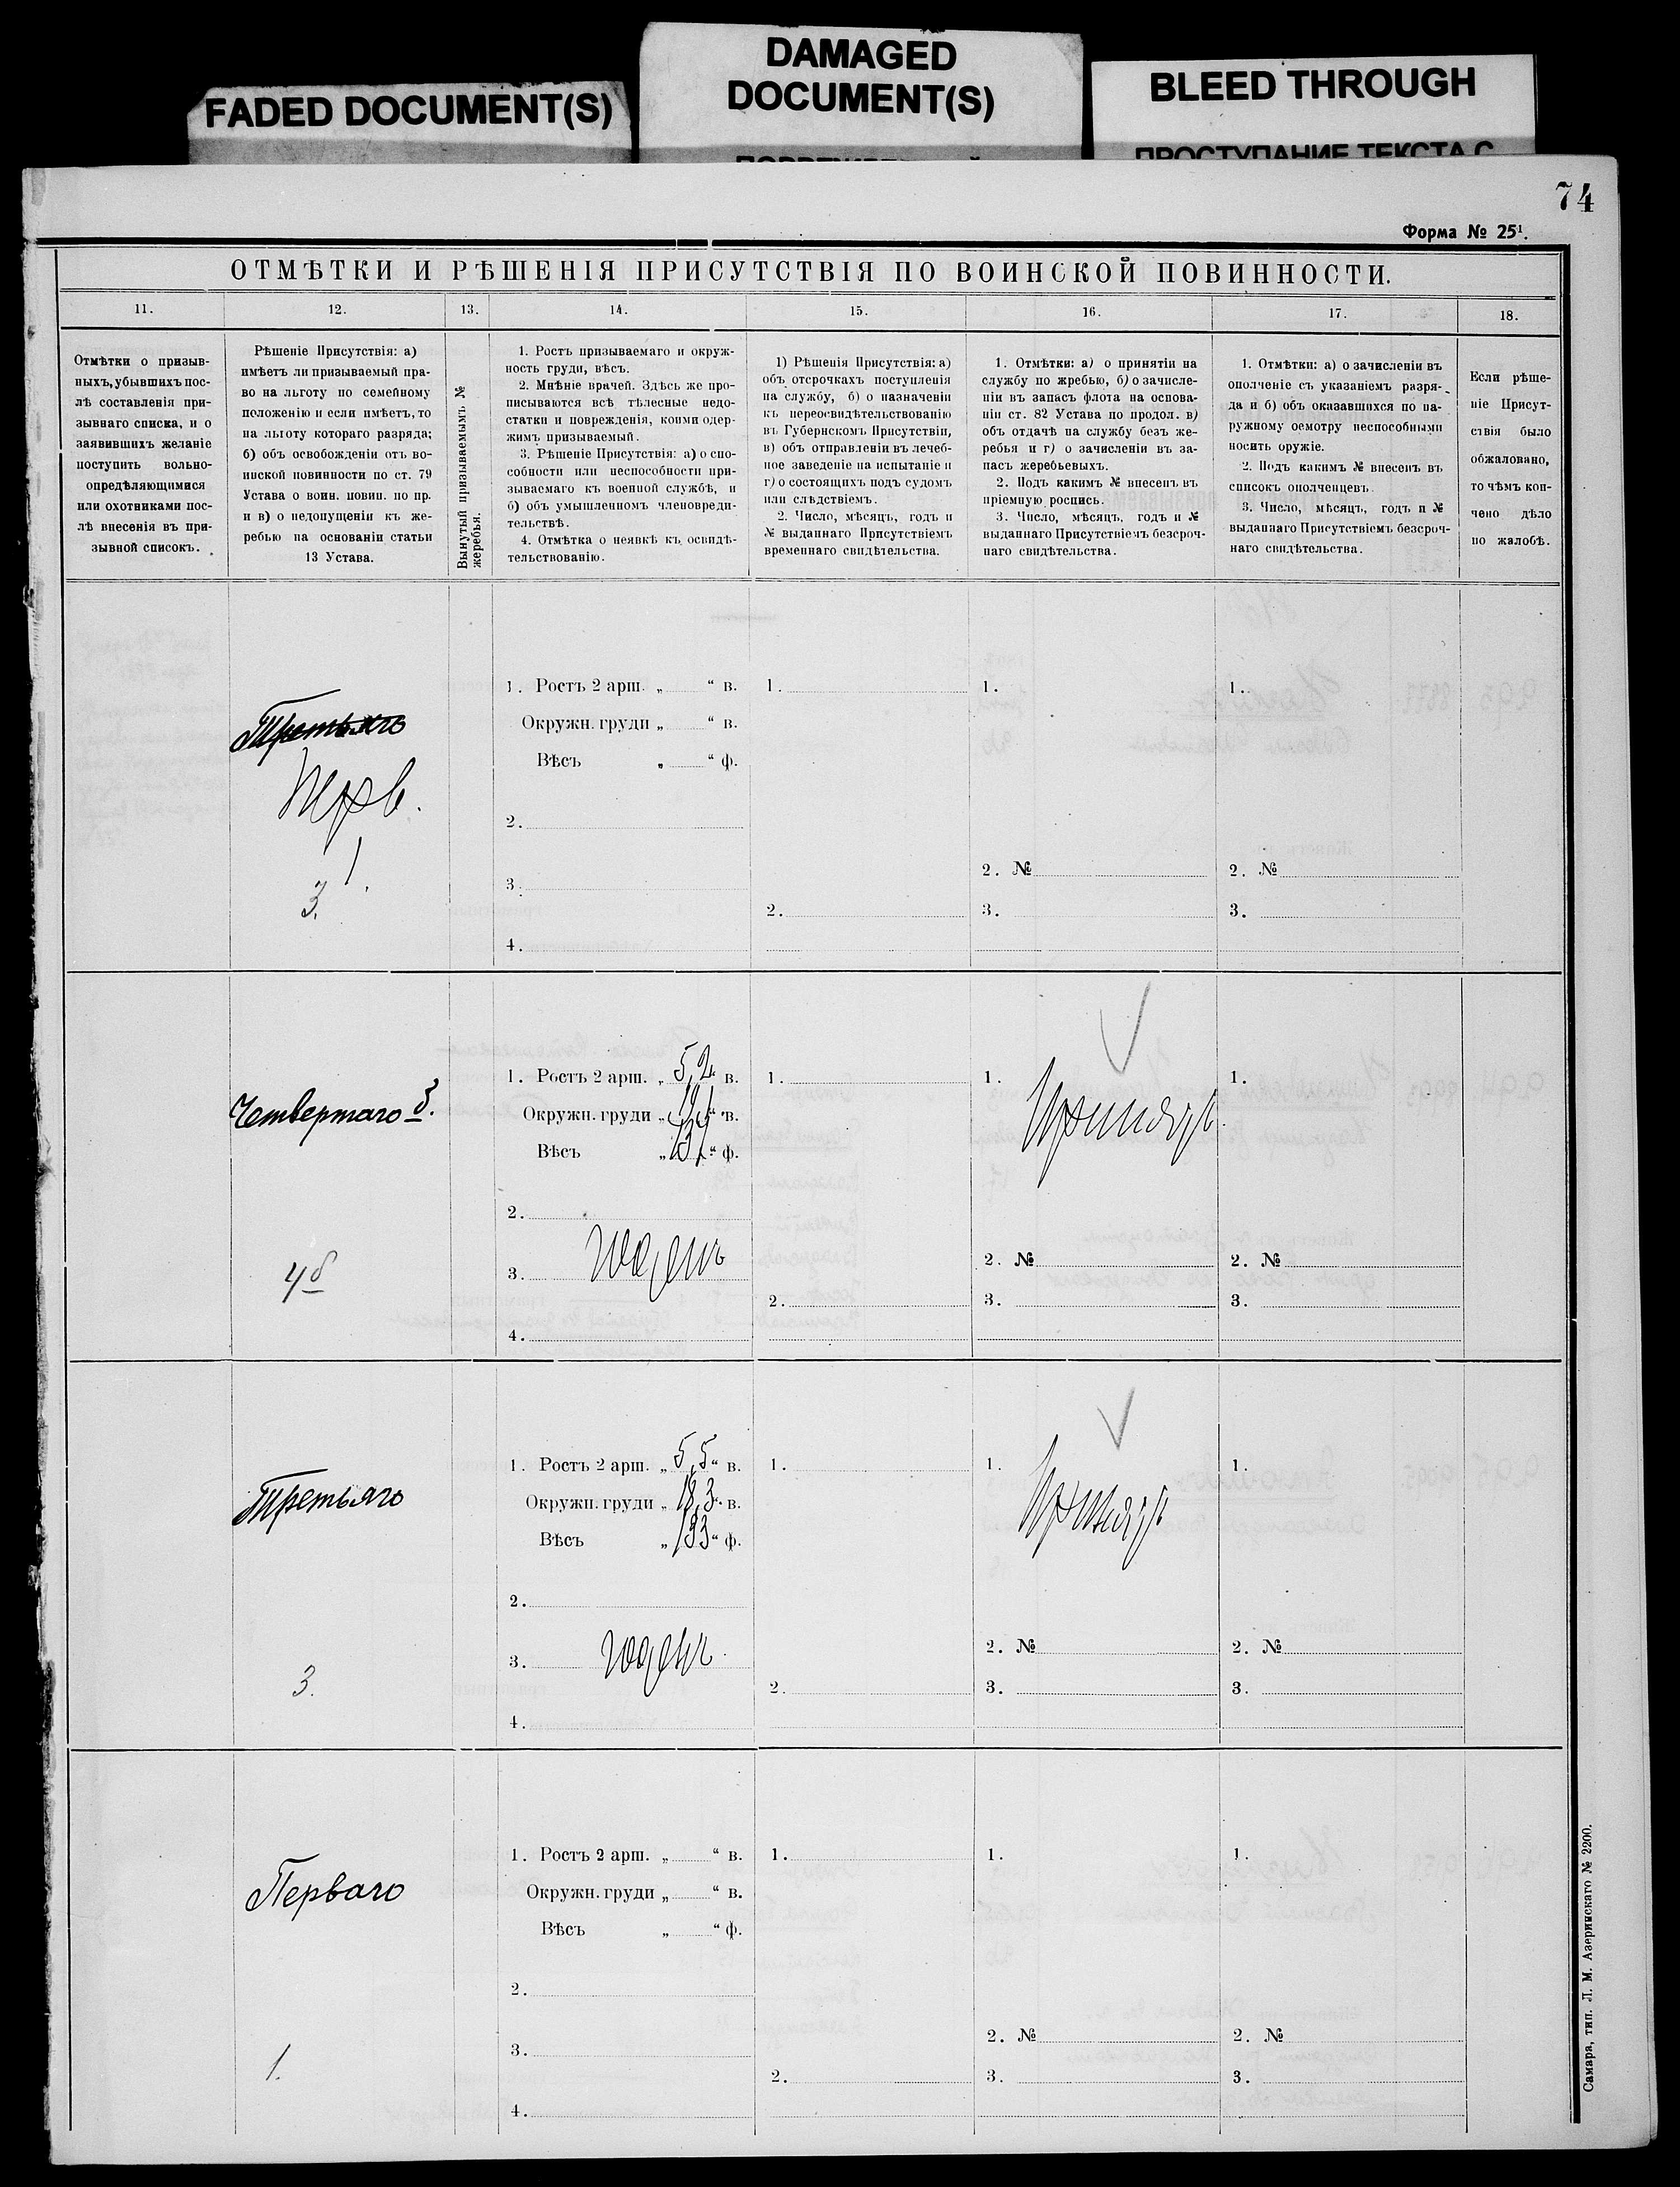 FADED DOCUMENT(S)
DAMAGED
DOCUMENT(S)
BLEED THROUGH
ПРОСТУПАНИЕ ТЕКСТА С
74
Форма № 25¹.
ОТМѢТКИ И РѢШЕНІЯ ПРИСУТСТВІЯ ПО ВОИНСКОЙ ПОВИННОСТИ.
11.
12.
13.
14.
15.
16.
17.
18.
Отмѣтки о призыв-
ныхъ, убывшихъ пос-
лѣ составленія при-
зывнаго списка, и о
заявившихъ желаніе
поступить вольно-
опредѣляющимися
или охотниками пос-
лѣ внесенія въ при-
зывной списокъ.
Рѣшеніе Присутствія: а)
имѣетъ ли призываемый пра-
во на льготу по семейному
положенію и если имѣетъ, то
на льготу котораго разряда;
б) объ освобожденіи отъ во-
инской повинности по ст. 79
Устава о воин. повин. по пр.
и в) о недопущеніи къ же-
ребью на основаніи статьи
13 Устава.
Вынутый призываемымъ №
жеребья.
1. Ростъ призываемаго и окруж-
ность груди, вѣсъ.
2. Мнѣніе врачей. Здѣсь же про-
писываются всѣ тѣлесные недо-
статки и поврежденія, коими одер-
жимъ призываемый.
3. Рѣшеніе Присутствія: а) о спо-
собности или неспособности при-
зываемаго къ военной службѣ, и
б) объ умышленномъ членовреди-
тельствѣ.
4. Отмѣтка о неявкѣ къ освидѣ-
тельствованію.
1) Рѣшенія Присутствія: а)
объ отсрочкахъ поступленія
на службу, б) о назначеніи
къ переосвидѣтельствованію
въ Губернскомъ Присутствіи,
в) объ отправленіи въ лечеб-
ное заведеніе на испытаніе и
г) о состоящихъ подъ судомъ
или слѣдствіемъ.
2. Число, мѣсяцъ, годъ и
№ выданнаго Присутствіемъ
временнаго свидѣтельства.
1. Отмѣтки: а) о принятіи на
службу по жребью, б) о зачисле-
ніи въ запасъ флота на основа-
ніи ст. 82 Устава по продол. в)
объ отдачѣ на службу безъ же-
ребья и г) о зачисленіи въ за-
пасъ жеребьевыхъ.
2. Подъ какимъ № внесенъ въ
пріемную роспись.
3. Число, мѣсяцъ, годъ и №
выданнаго Присутствіемъ безсроч-
наго свидѣтельства.
1. Отмѣтки: а) о зачисленіи въ
ополченіе съ указаніемъ разря-
да и б) объ оказавшихся по на-
ружному осмотру неспособными
носить оружіе.
2. Подъ какимъ № внесенъ въ
списокъ ополченцевъ.
3. Число, мѣсяцъ, годъ и №
выданнаго Присутствіемъ безсроч-
наго свидѣтельства.
Если рѣше-
ніе Присут-
ствія было
обжаловано,
то чѣмъ кон-
чено дѣло
по жалобѣ.
Третьяго
Перв.
1.
3.
1. Ростъ 2 арш. „ “ в.
Окружн. груди „ “ в.
Вѣсъ „ “ ф.
2.
3.
4.
1.
2.
1.
2. №
3.
1.
2. №
3.
Четвертаго б.
4б
1. Ростъ 2 арш. „ 5,2 “ в.
Окружн. груди „ “ в.
Вѣсъ „ “ ф.
2.
3. Годенъ
4.
1.
2.
1. Принять
2. №
3.
1.
2. №
3.
Третьяго
3.
1. Ростъ 2 арш. „ 5,5 “ в.
Окружн. груди „ 18,3 “ в.
Вѣсъ „ 133 “ ф.
2.
3. Годенъ
4.
1.
2.
1. Принять
2. №
3.
1.
2. №
3.
Перваго
1.
1. Ростъ 2 арш. „ “ в.
Окружн. груди „ “ в.
Вѣсъ „ “ ф.
2.
3.
4.
1.
2.
1.
2. №
3.
1.
2. №
3.
Самара, тип. Л. М. Азеринскаго № 2200.